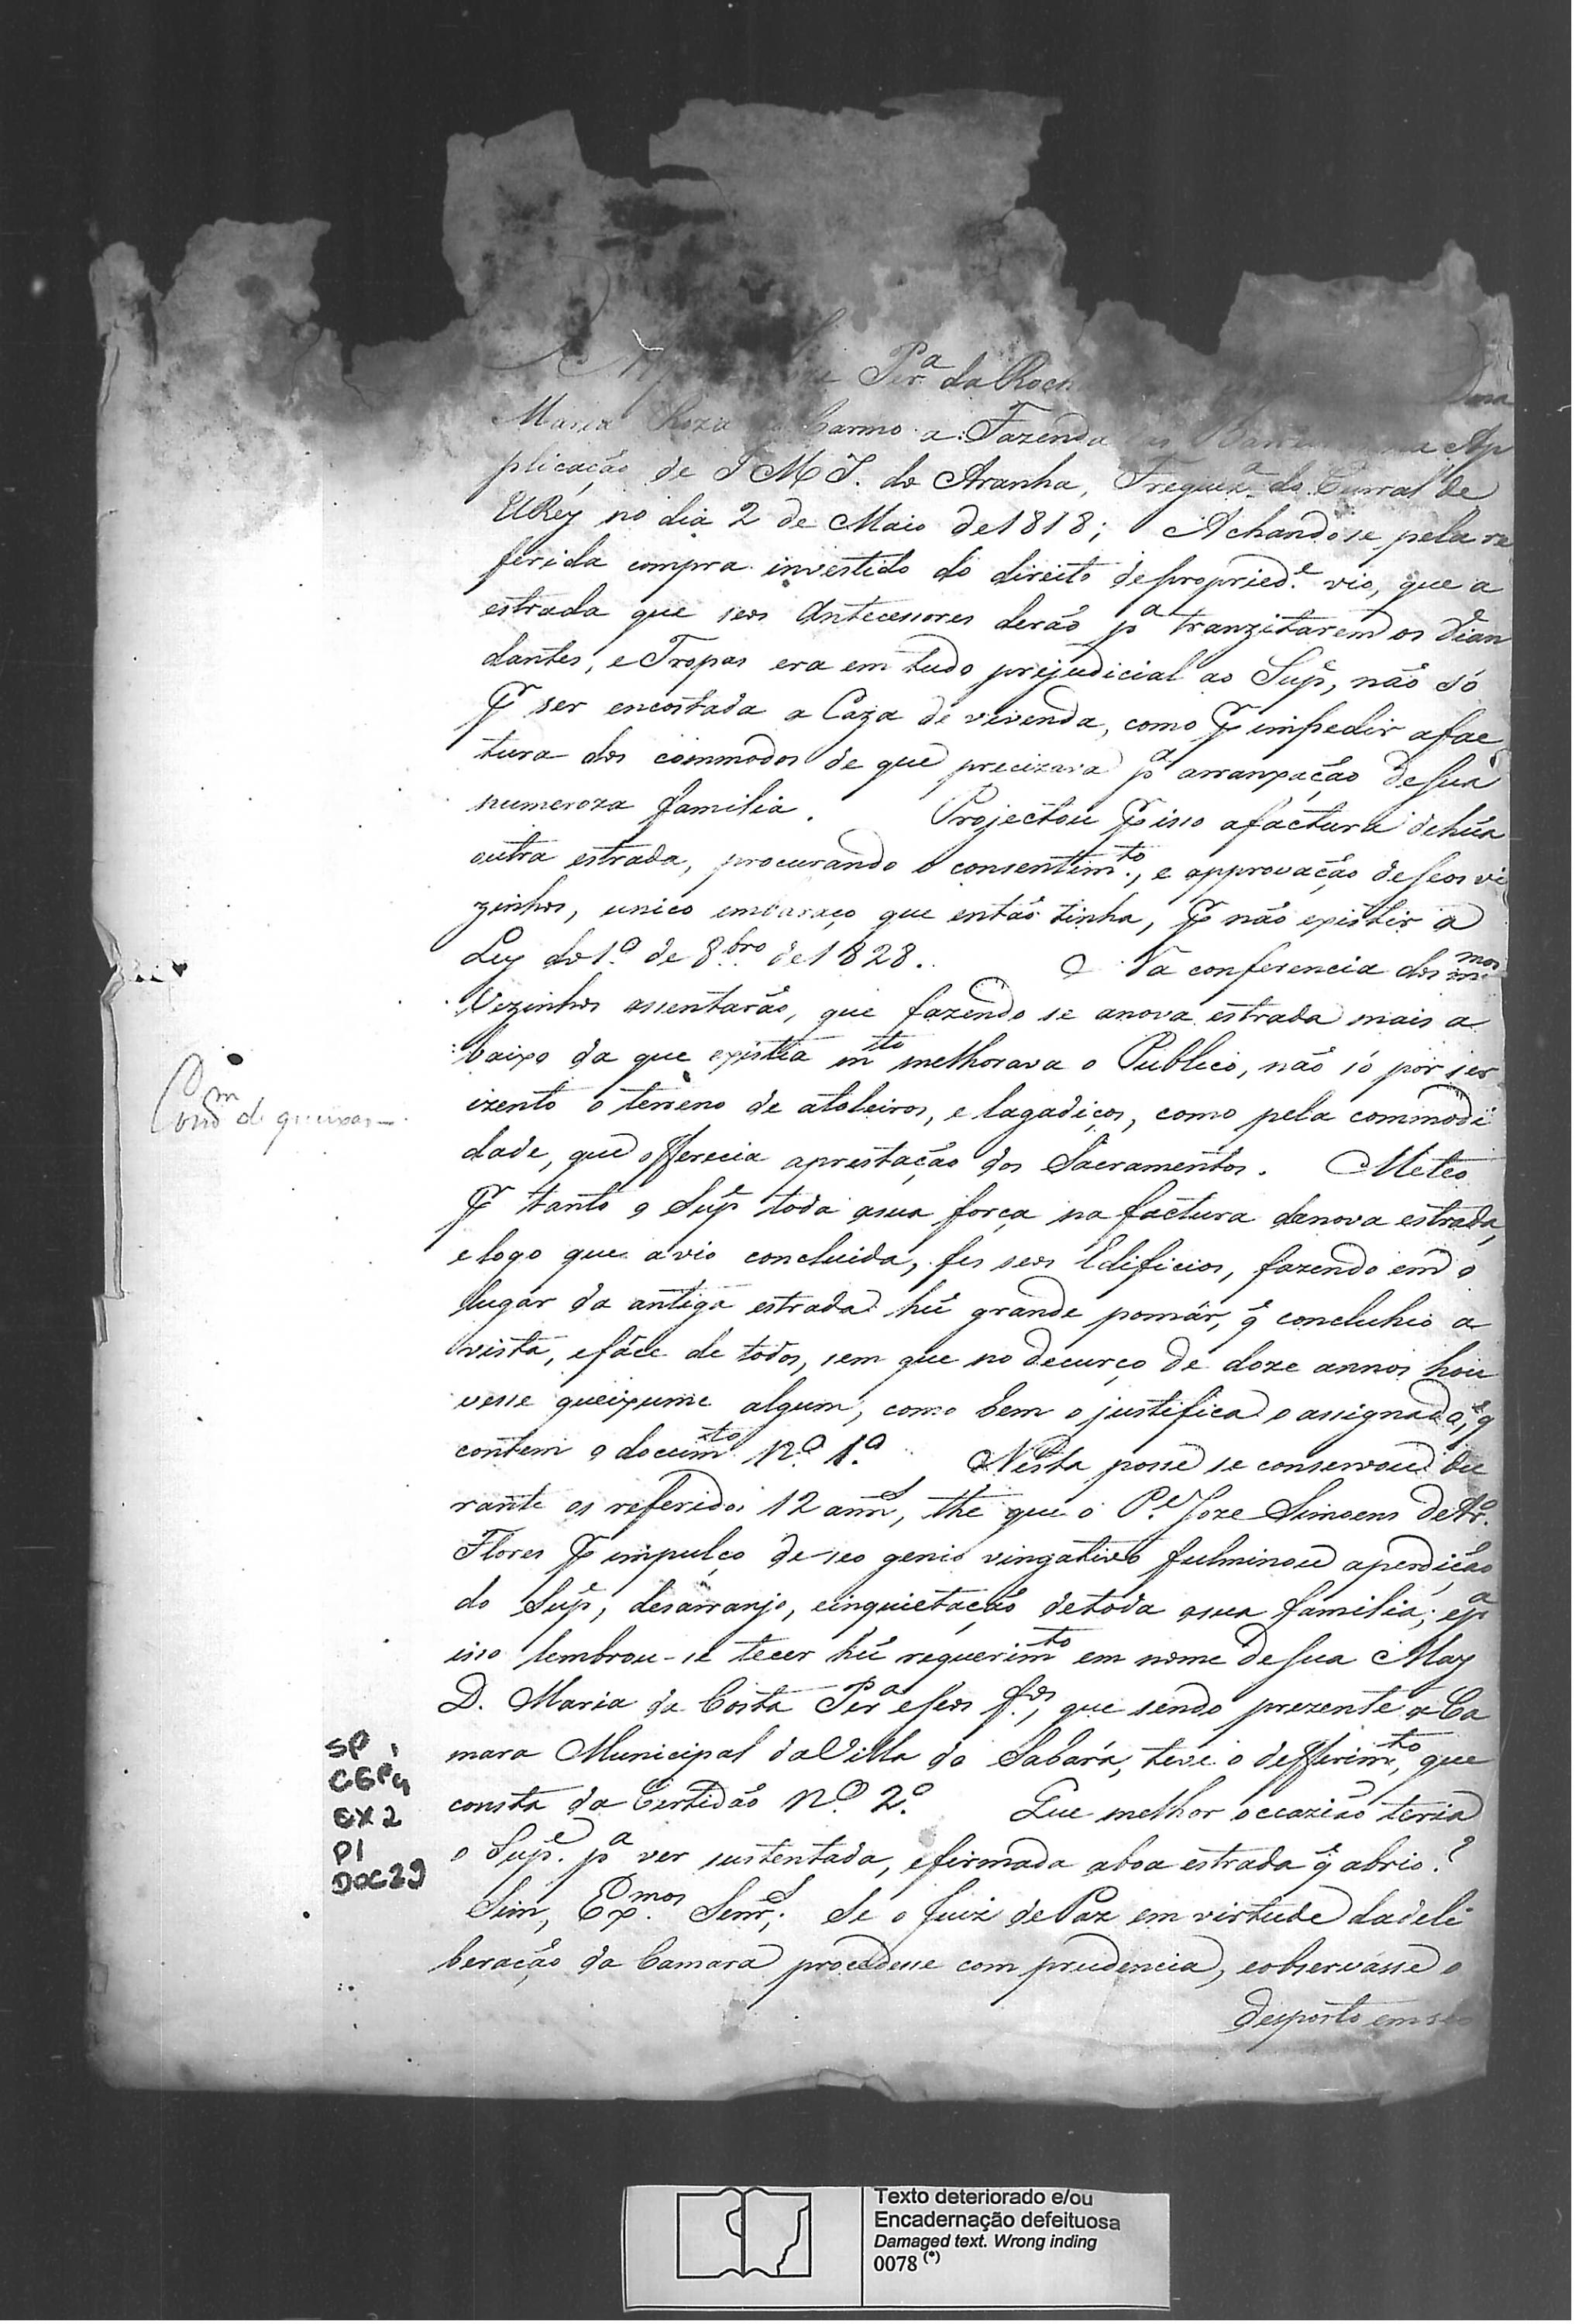 Per.ª da Roch
Maria Roza Carmo a Fazenda
plicação de J M J. do Aranha, Freguez.ª do Curral de
ElRey no dia 2 de Maio de 1818; Achando se pela re
ferida compra investido do direito de propried.e vio, que a
estrada que seos Antecessores derão p.ª tranzitarem os Vian
dantes, e Tropas era em tudo prejudicial ao Sup.e, não só
p.r ser encostada a Caza de vivenda, como p.r impedir a fac
tura dos commodos de que precizava p.ª arranxação de sua
numeroza familia. Projectou p.r isso a factura de húa
outra estrada, procurando o consentim.to, e approvação de seos vi
zinhos, unico embaraço que então tinha, p.r não existir a
Ley do 1.º de 8.bro de 1828. Na conferencia dos m.mos
Vezinhos assentarão, que fazendo se a nova estrada mais a
baixo da que existia m.to melhorava o Publico, não só por ser
izento o terreno de atoleiros, e lagadiços, como pela commodi
dade, que offerecia a prestação dos Sacramentos. Meteo
p.r tanto o Sup.e toda a sua força na factura da nova estrada,
e logo que a vio concluida, fes seos Edificios, fazendo em o
lugar da antiga estrada hú grande pomár, q̃ concluhio a
vista, e fáce de todos, sem que no decurço de doze annos hou
vesse queixume algum, como bem o justifica o assignado, q̃
contem o docum.to N.º 1.º Nesta posse se conservou du
rante os referidos 12 ann.s, thé que o P.e Joze Simoens de Ar.º
Flores p.r impulço de seo genio vingativo fulminou a perdição
do Sup.e, desarranjo, e inquietação de toda a sua familia; e p.ª
isso lembrou-se tecer hú requerim.to em nome de sua May
D. Maria da Costa Per.ª e seos f.os, que sendo prezente a Ca
mara Municipal da Villa do Sabará, teve o defferim.to, que
consta da Certidão N.º 2.º Que melhor occazião teria
o Sup.e p.ª ver sustentada, e firmada a boa estrada q̃ abrio?
Sim, Ex.mos Senr.s; Se o Juiz de Paz em virtude da deli
beração da Camara procedesse com prudencia, e observasse o
desposto em seo
de queixas
SP 1
CGP4
EX2
P1
DOC29
Texto deteriorado e/ou
Encadernação defeituosa
Damaged text. Wrong inding
0078 (*)